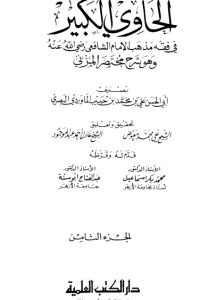 الحاوي الكبير
في فقه مذهب الإمام الشافعي رضي الله عنه
وهو شرح مختصر المزني
تصنيف
أبي الحسن علي بن محمد بن حبيب الماوردي البصري
تحقيق وتعليق
الشيخ علي محمد معوض الشيخ عادل أحمد عبد الموجود
قدم له وقرظه
الأستاذ الدكتور الأستاذ الدكتور
محمد بكر إسماعيل عبد الفتاح أبو سنة
أستاذ بجامعة الأزهر جامعة الأزهر
الجزء الثامن
دار الكتب العلمية